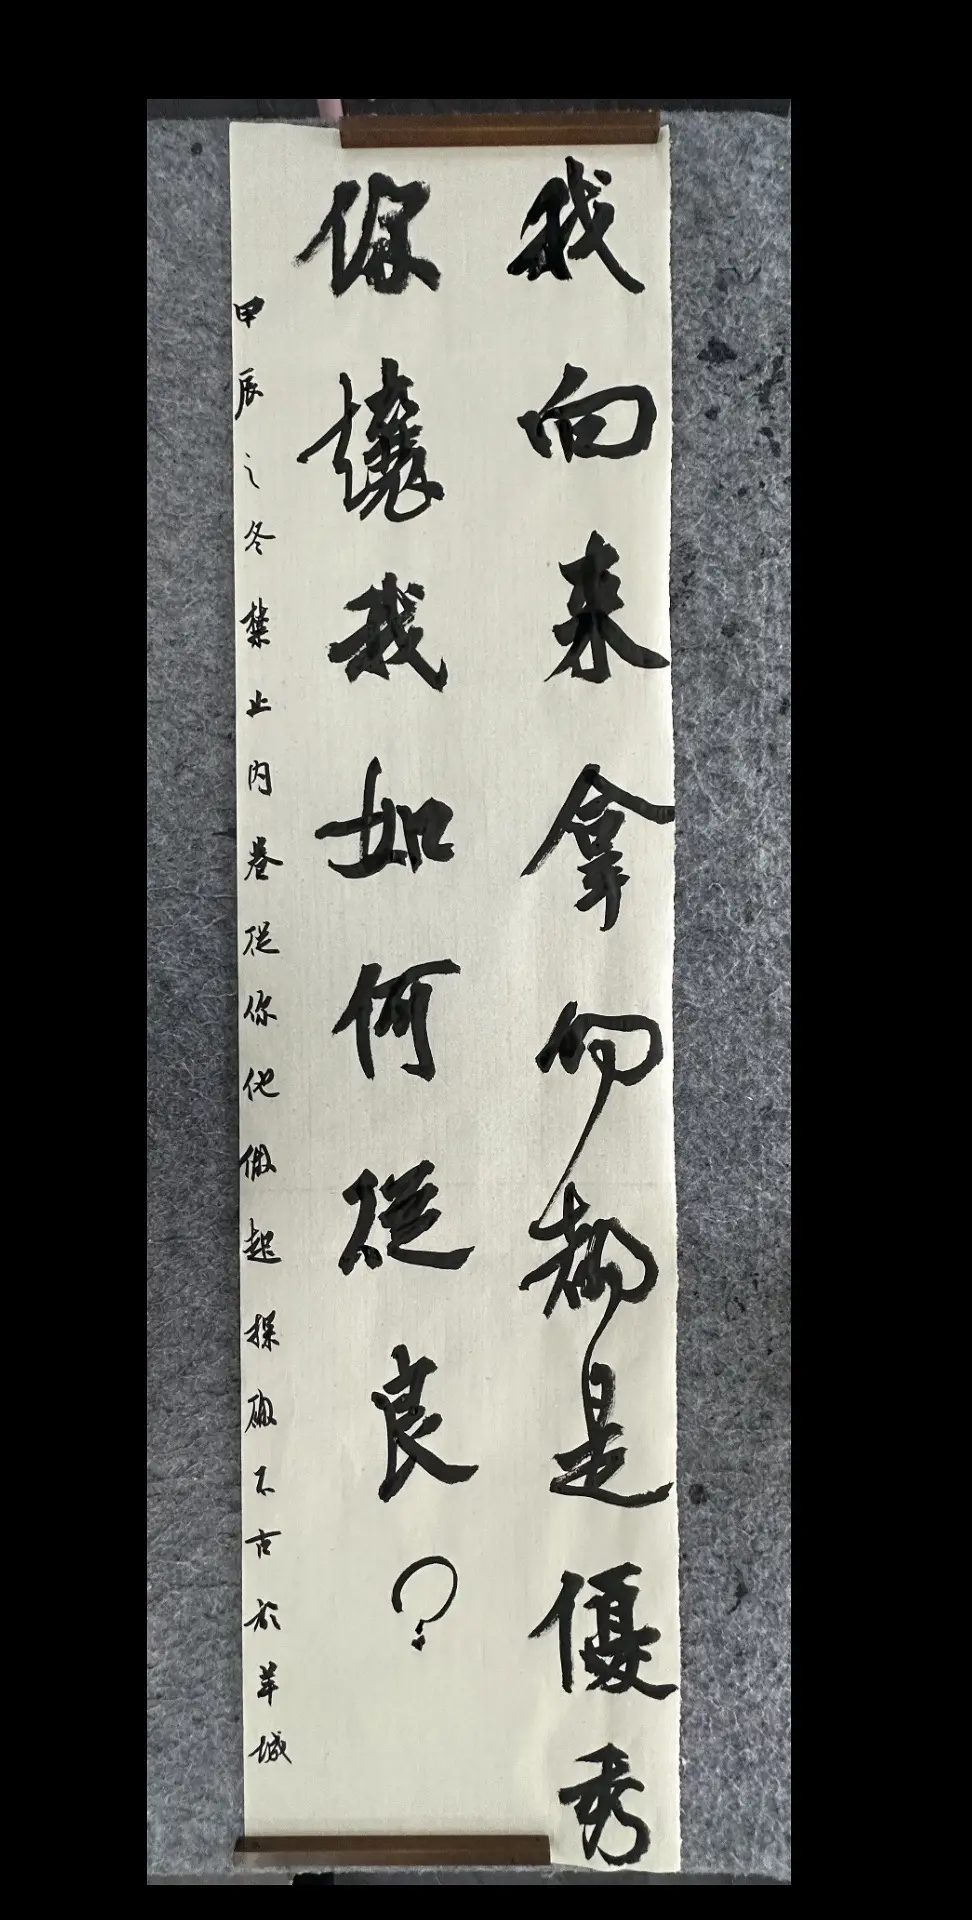 我向来拿的都是優秀
你讓我如何從良？
甲辰之冬禁止内卷從你他做起古於羊城